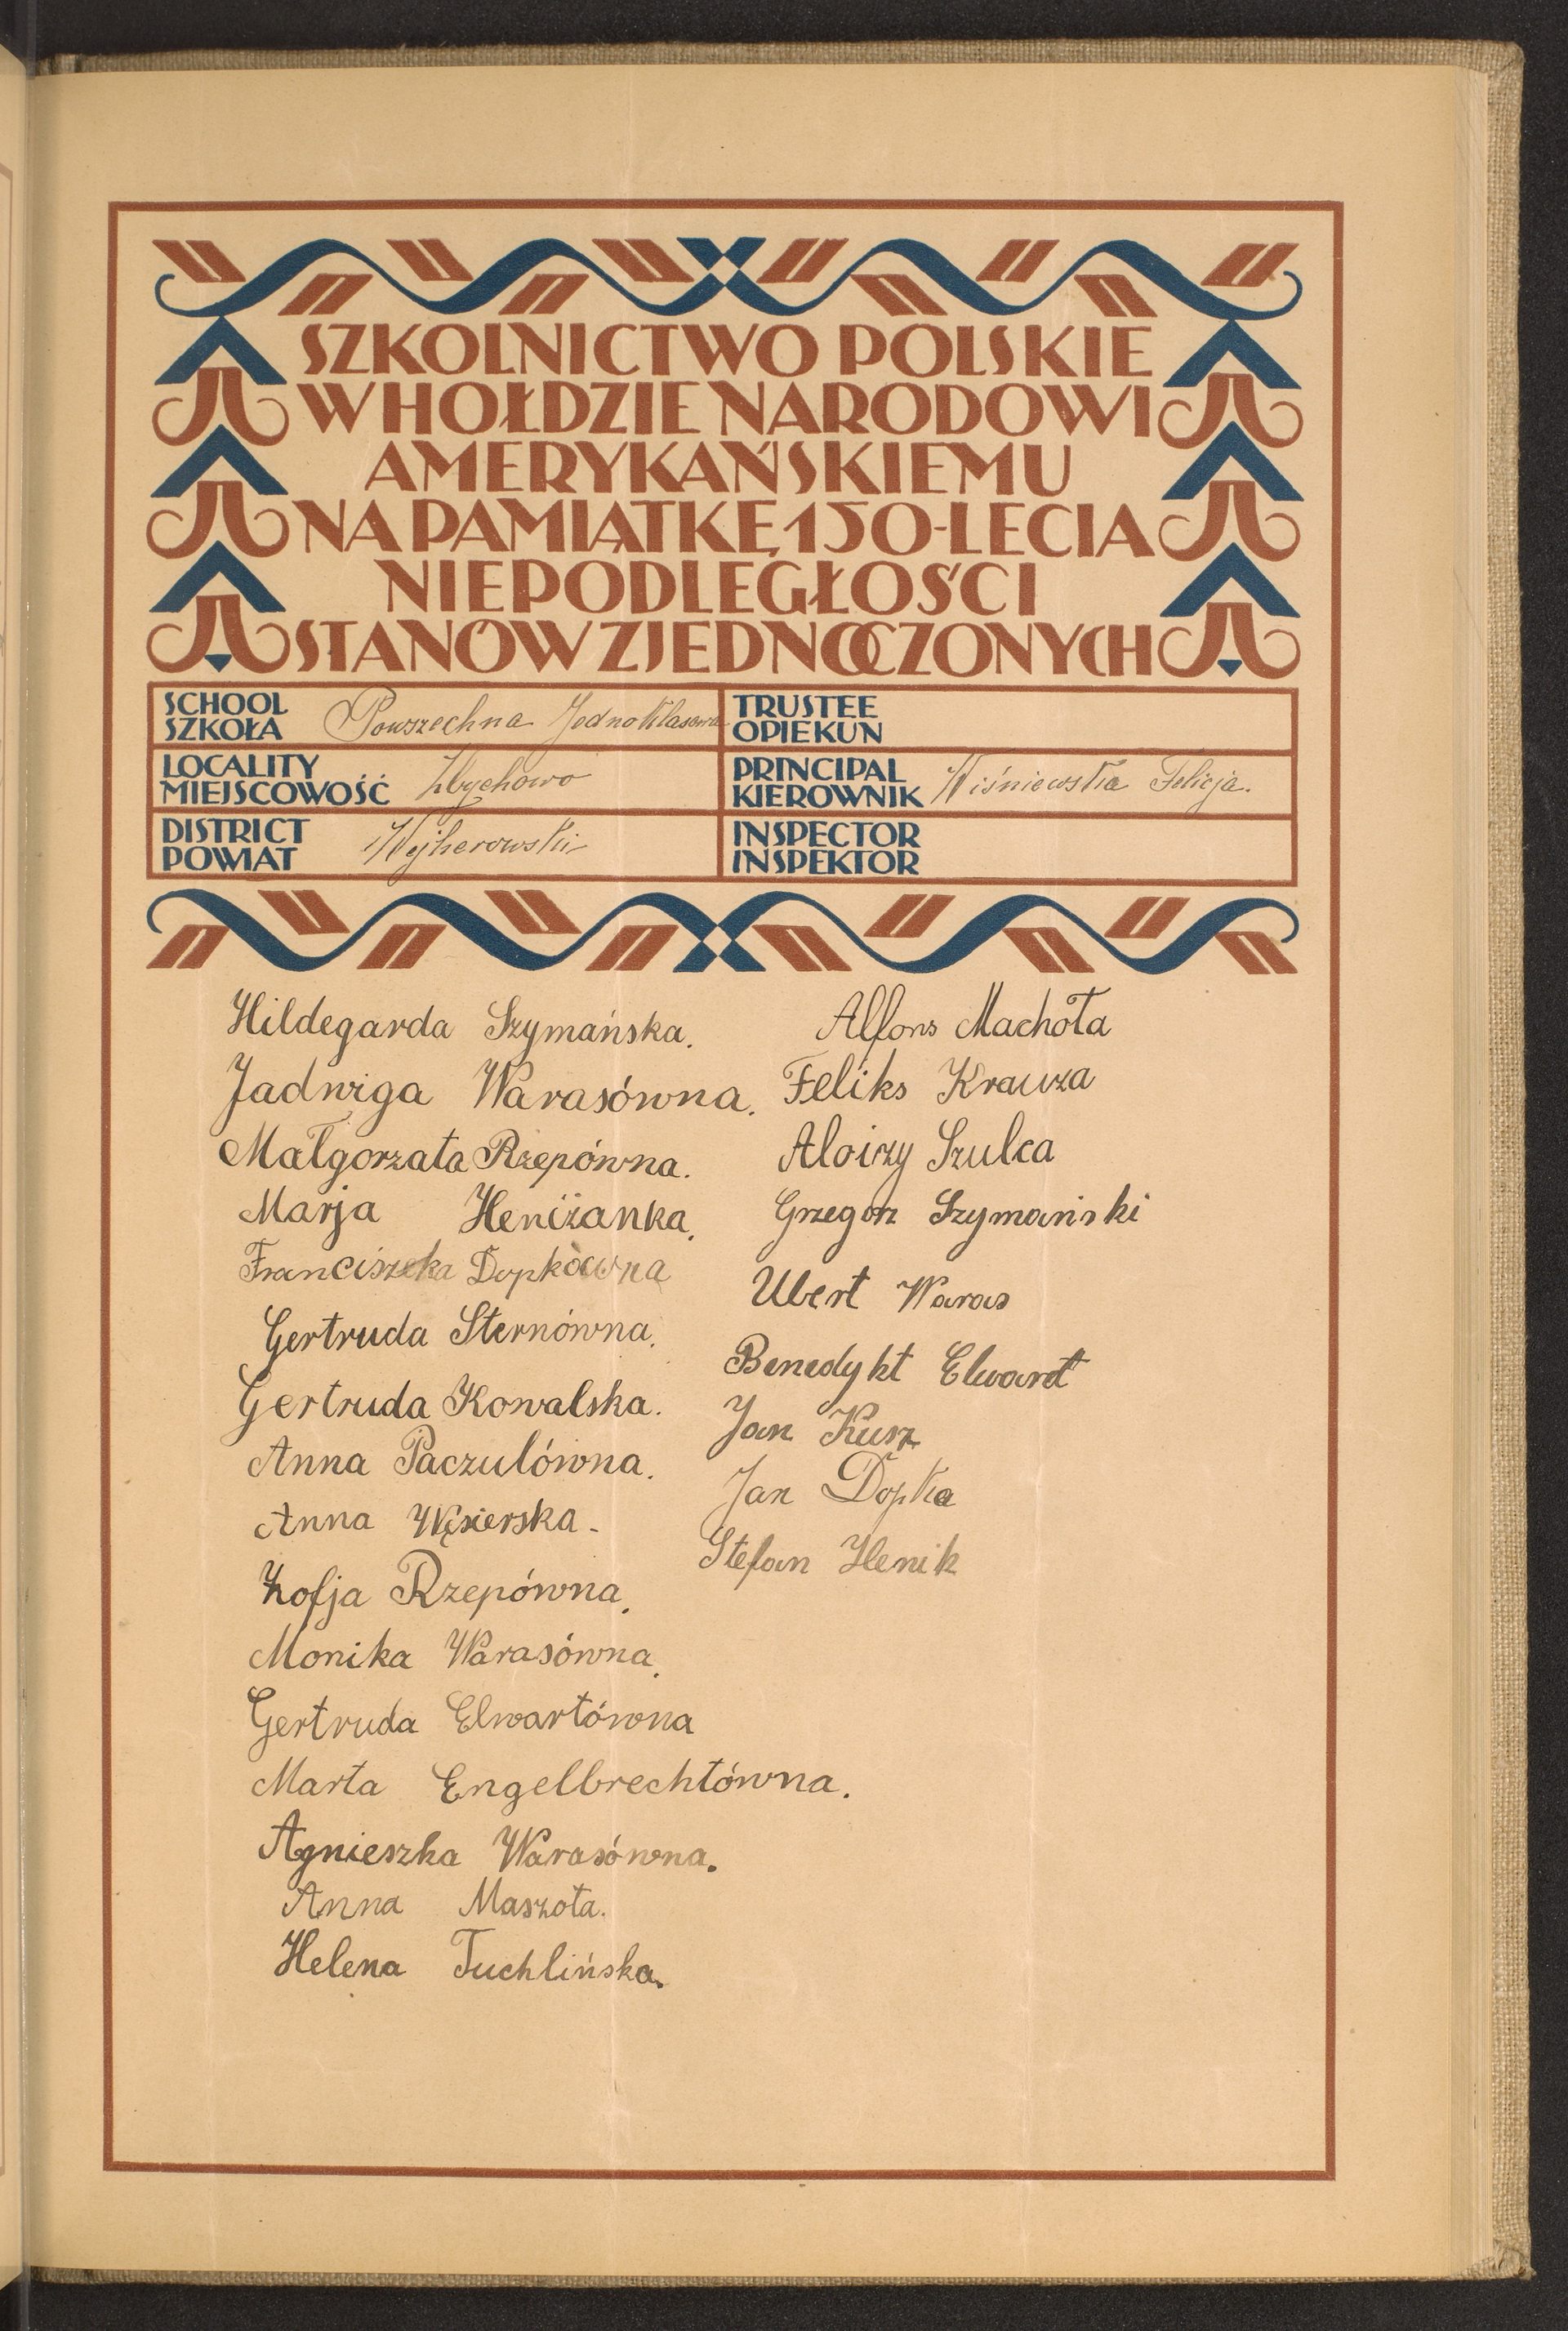 SZKOLNICTWO POLSKIE
W HOŁDZIE NARODOWI
AMERYKAŃSKIEMU
NA PAMIĄTKĘ 150-LECIA
NIEPODLEGŁOŚCI
STANÓW ZJEDNOCZONYCH
SCHOOL
SZKOŁA Powszechna Jednoklasowa
TRUSTEE
OPIEKUN
LOCALITY
MIEJSCOWOŚĆ Zbychowo
PRINCIPAL
KIEROWNIK Wiśniewska Felicja.
DISTRICT
POWIAT Wejherowski
INSPECTOR
INSPEKTOR
Hildegarda Szymańska.
Jadwiga Warasówna.
Małgorzata Rzepówna.
Marja Heniżanka.
Franciszeka Dopkówna
Gertruda Sternówna.
Gertruda Kowalska.
Anna Paczulówna.
Anna Węsierska.
Zofja Rzepówna.
Monika Warasówna.
Gertruda Elwartówna
Marta Engelbrechtówna.
Agnieszka Warasówna.
Anna Maszota.
Helena Tuchlińska.
Alfons Machota
Feliks Krauza
Aloizy Szulca
Grzegorz Szymański
Ubert Waras
Benedykt Elwardt
Jan Kusz
Jan Dopka
Stefan Henik